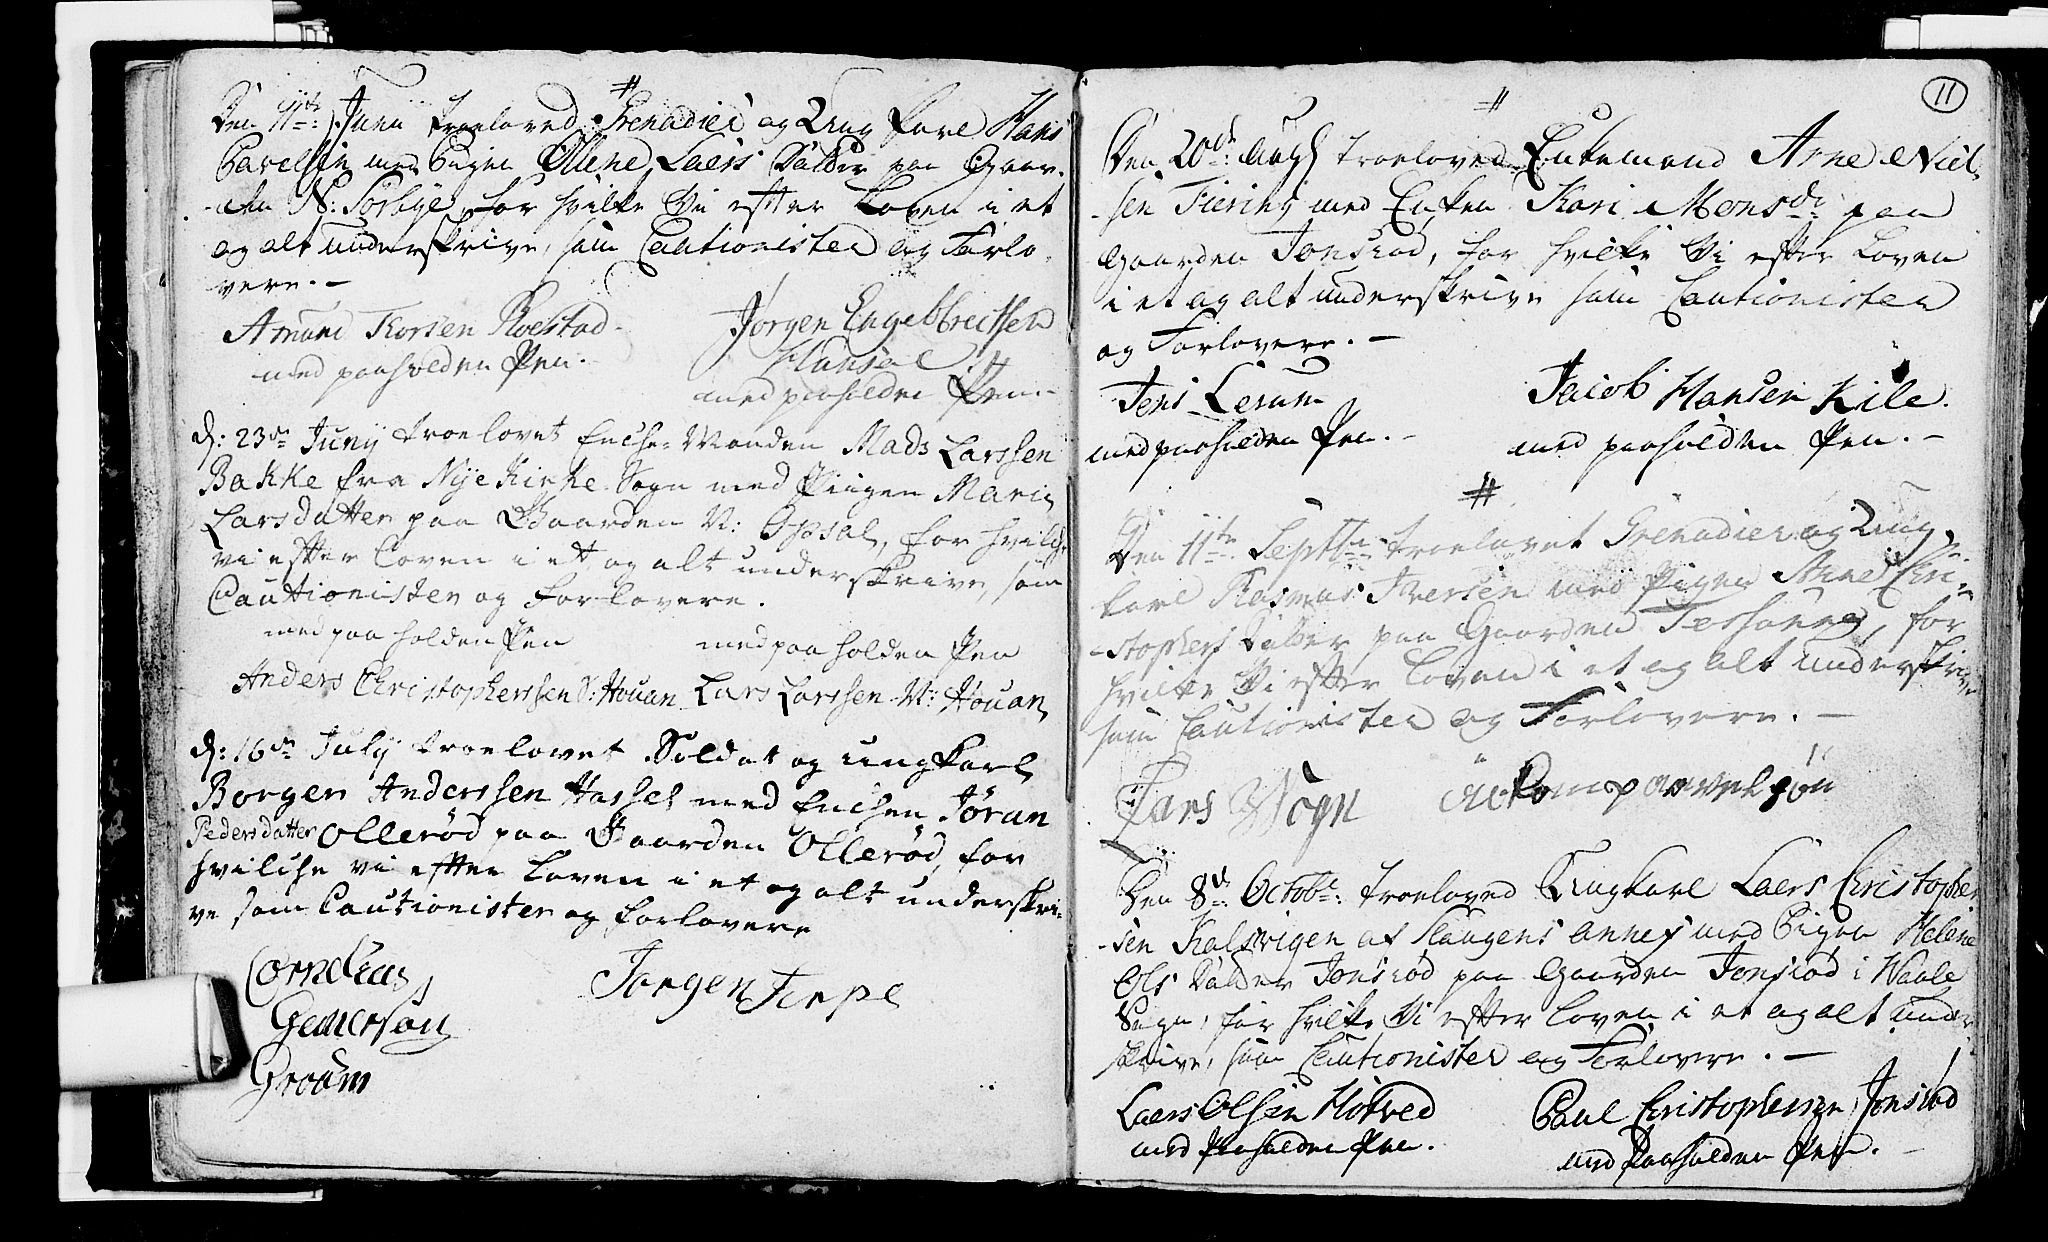 #
Den 11te Junii troeloved Grenadier og Ung Karl Hans
Pavelsen med Pigen Ollene Laers Datter paa Gaar-
den N: Sørbye, for hvilke Vi efter Loven i et
og alt underskrive, som Cautionister og Forlo-
vere.
Amund Torsen Roestad
med paaholden Pen.
Jørgen Engelbrectsen
Hansøe
med paaholden Pen.
d: 23de Junij troelovet Enche-Manden Mads Larssen
Bakke fra Nÿekirke Sogn med Piigen Maria
Larsdatter paa Gaarden N: Opsal, for hvilche
vi efter loven i et og alt underskrive, som
Cautionister og forlovere.
med paa holden Pen
med paa holden Pen
Anders Christopherssen S: Houan Lars Larssen N: Houan
d: 16de Julÿ troelovet Soldat og ungkarl
Borger Anderssen Hasset med Enchen Jöran
Pedersdatter Ollerød paa Gaarden Ollerød, for
hvilche vi efter loven i et og alt underskri-
ve som Cautionister og forlovere
Cornelius
Gemerson
Groum
Jørgen Terpe
11
#
Den 20de Aug troeloved Enkemand Arne Niel-
sen Fiering med Enken Kari Monsdr paa
Gaarden Jonsrod, for hvilke Vi efter Loven
i et og alt underskrive som Cautionister
og Forlovere.
Jens Lerum
med paaholden Pen.
Jacob Hansen Kile.
med paaholden Pen.
#
Den 11te Septbr troelovet Grenadier og Ung-
karl Rasmus Iversen med Pigen Anne Chri-
stophers Datter paa Gaarden, for
hvilke Vi efter Loven i et og alt underskrive
som Cautionister og Forlovere.
Lars Wogn
Den 8de Octobr: troeloved Ungkarl Laers Christopher-
sen Kalsvigen af Haugens annex med Pigen Helene
Ols Datter Jonsrød paa Gaarden Jonsrød i Waale
Sogn, for hvilke Vi efter Loven i et og alt under-
skrive, som Cautionister og Forlovere.
Laers Olsen Høtved
med Paaholden Pen.
Paul Christophersen Jonsrød
med Paaholden Pen.